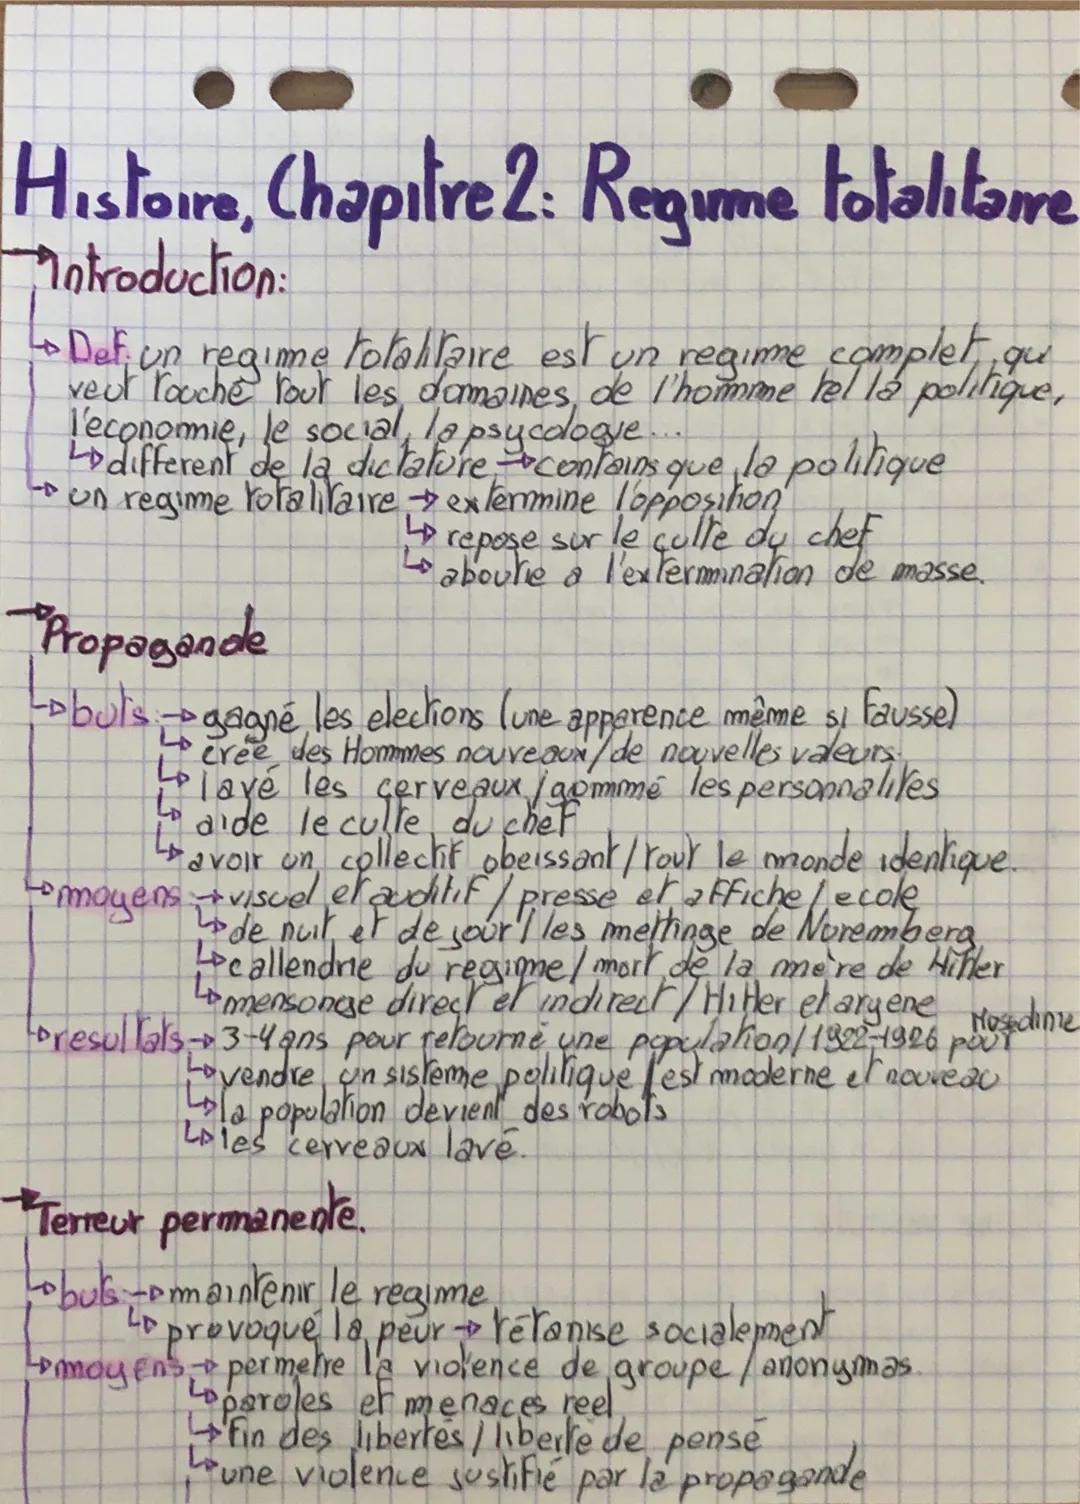 Histoire, Chapitre 2: Regime totalitaire
→ Introduction:
↳ Def: un regime totalitaire est un regime complet, qui
veut touché tout les domaines de l'homme tel la politique,
l'économie, le social, la psycologye...
↳ different de la dictature → contains que la politique
→ un regime totalitaire → extermine l'opposition
↳ repose sur le culte du chef
↳ aboutie a l'extermination de masse.
→ Propagande
→ buts: → gagné les elections (une apparence même si fausse)
↳ créé des Hommes nouveaux/de nouvelles valeurs.
↳ lavé les cerveaux / gommé les personnalités
↳ aide le culte du chef
↳ avoir un collectif obeissant / tout le monde identique.
↳ moyens: → visuel et auditif / presse et affiche / ecole
↳ de nuit et de jour / les mettinge de Nuremberg
↳ callendrie du regime / mort de la mère de Hitler
↳ mensonge direct et indirect / Hitler et aryene
↳ resultats → 3-4 ans pour retourné une population / 1922-1926 pour
↳ vendre un sisteme politique / est moderne et nouveau
↳ la population devient des robots
↳ les cerveaux lavé.
→ Terreur permanente.
↳ buts → maintenir le regime
↳ provoqué la peur → tétanise socialement
↳ moyens → permetre la violence de groupe / anonymas.
↳ paroles et menaces reel
↳ fin des libertés / liberté de pensé
↳ une violence justifié par la propagande